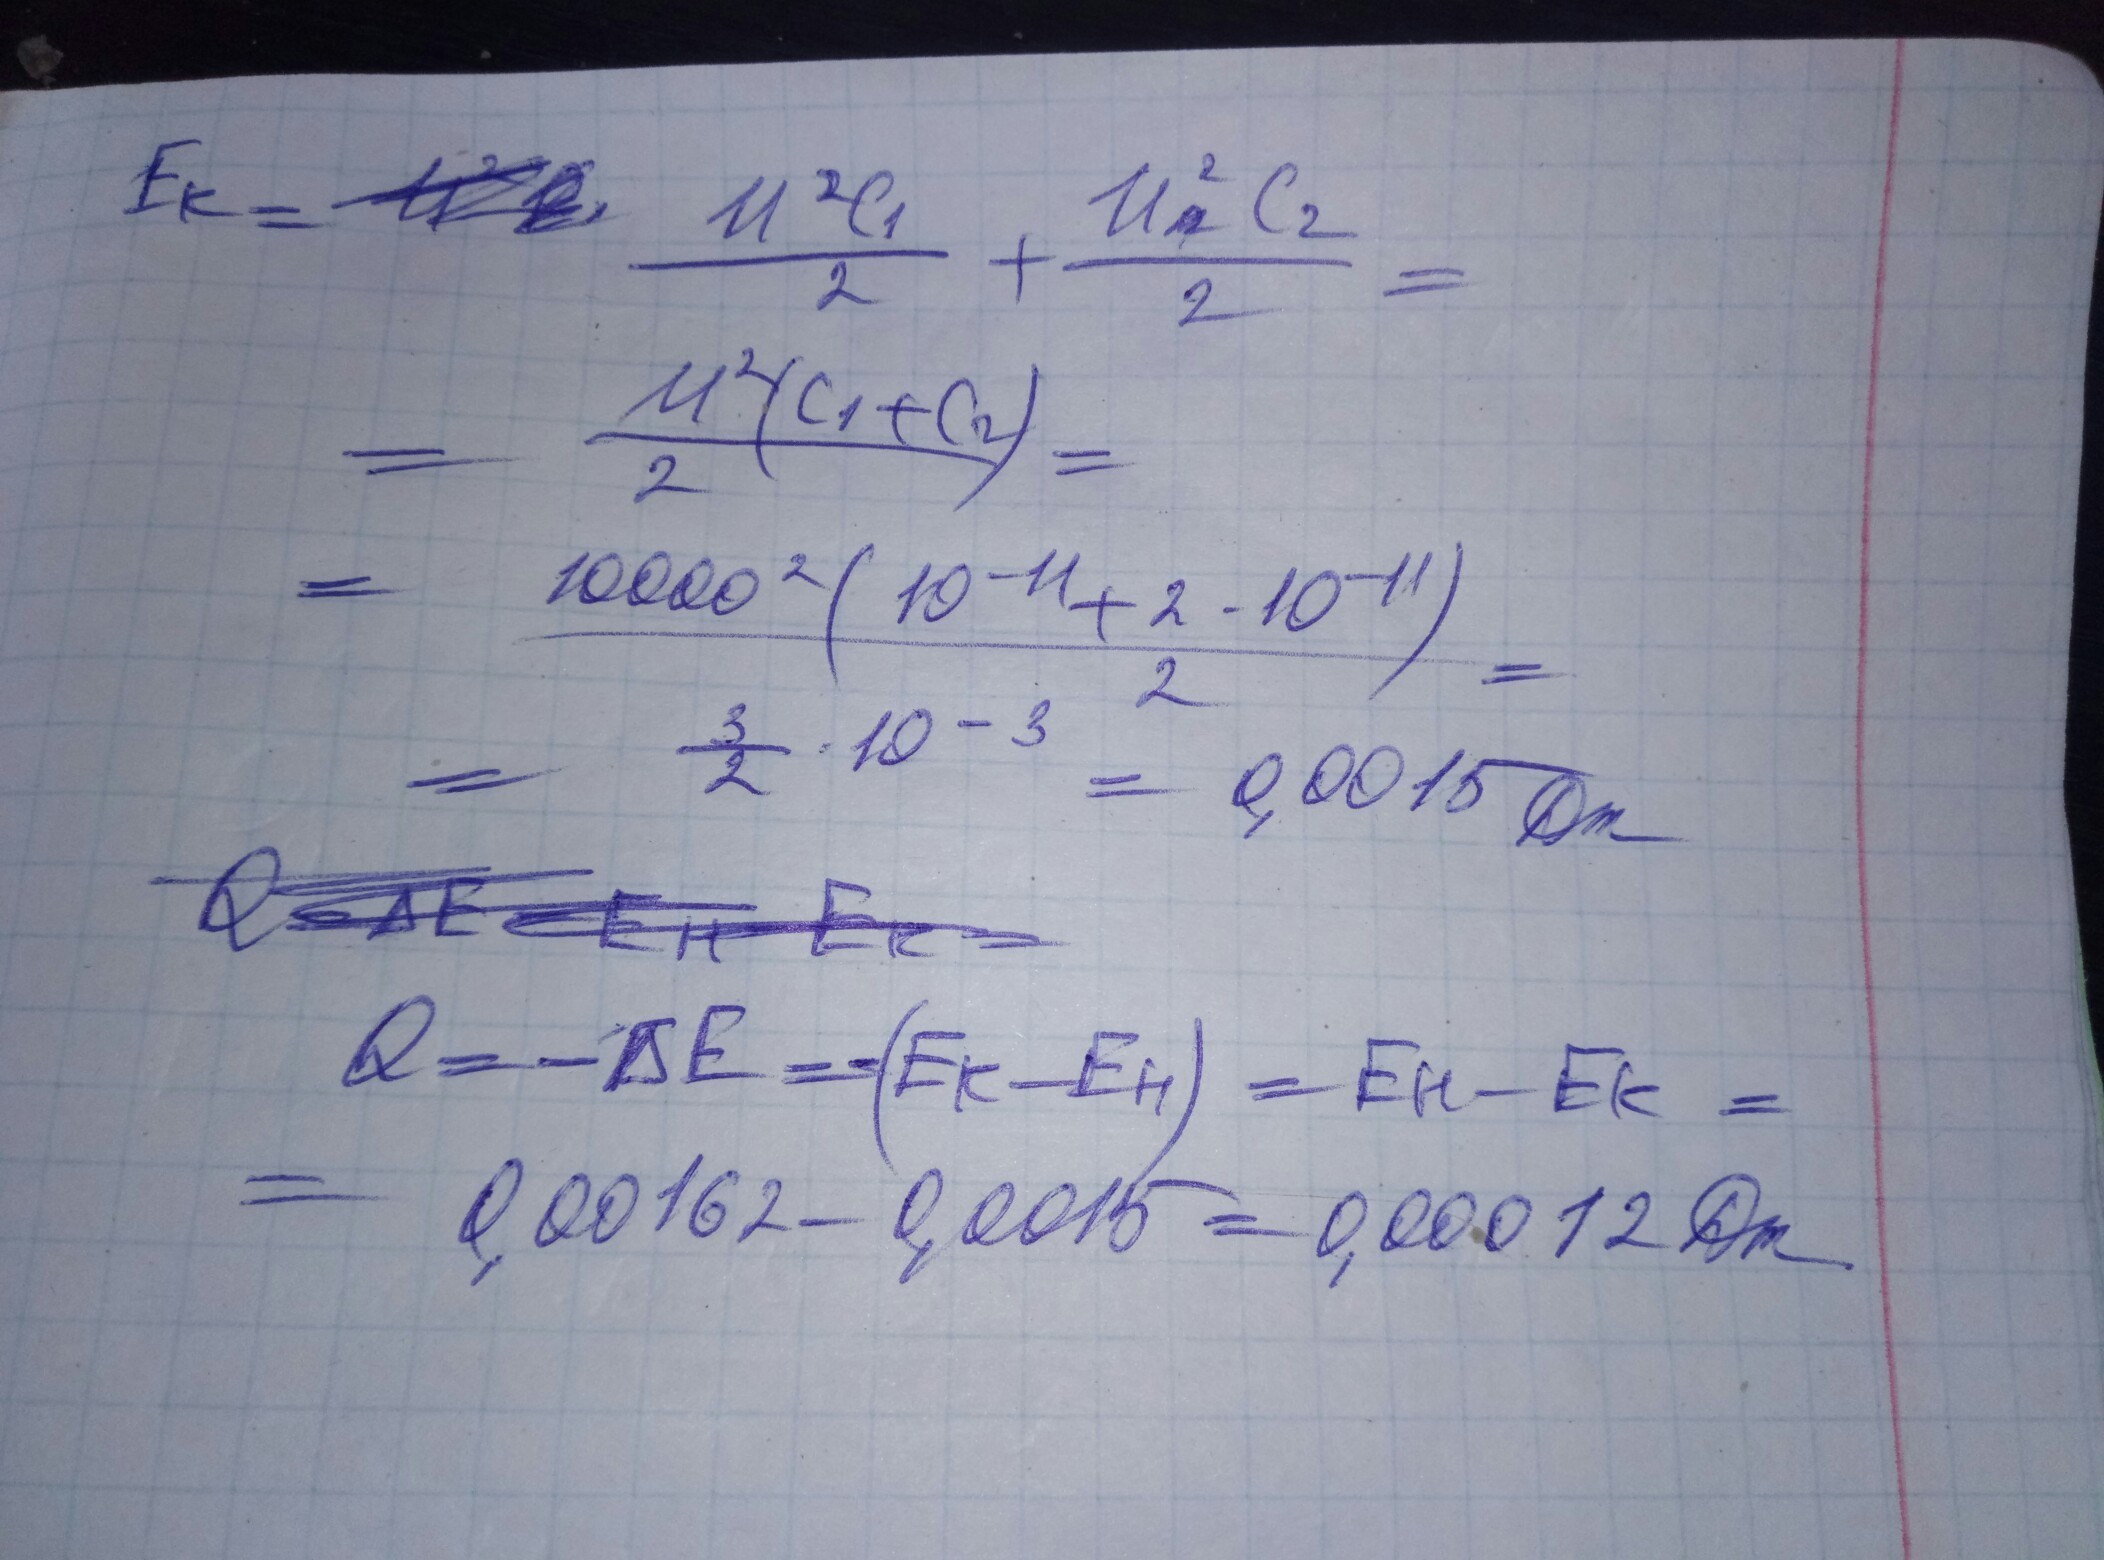 Eк = U²C₁/2 + U²C₂/2 =
= U²(C₁+C₂)/2 =
= 10000²(10⁻¹¹ + 2·10⁻¹¹)/2 =
= 3/2 · 10⁻³ = 0,0015 Дж
Q = ΔE = Eн - Eк =
Q = -ΔE = -(Eк - Eн) = Eн - Eк =
= 0,00162 - 0,0015 = 0,00012 Дж